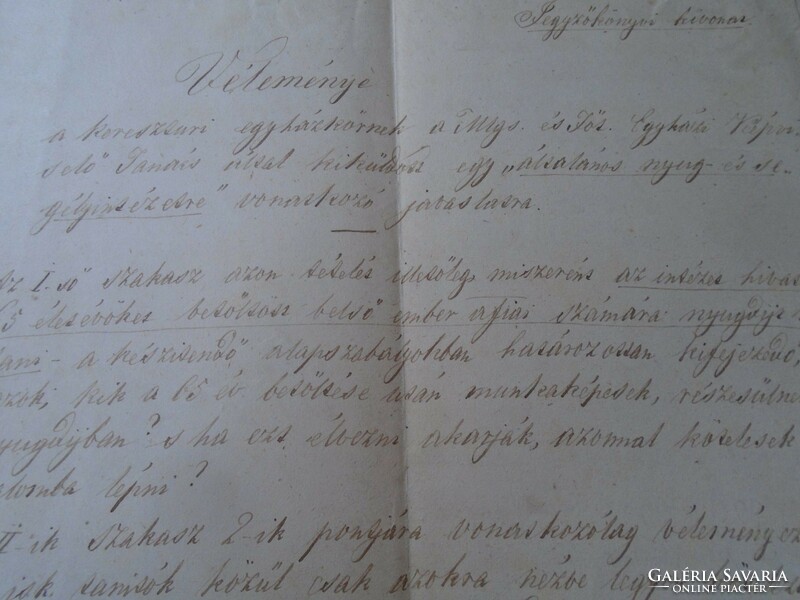 Jegyzőkönyvi kivonat.
Véleménye
a kereszturi egyházkörnek a Mlgs. és Főt. Egyházi Képvi-
selő Tanács által kiküldött egy „általános nyug- és se-
gélyintézetre" vonatkozó javaslatra.
az I-ső szakasz azon tételét illetőleg, miszerént az intézet hivat
65 életévöket betöltött belső ember afiai számára nyugdijt
tani - a készitendő alapszabályokban határozottan kifejezendő,
azok, kik a 65 év betöltése után munkaképesek, részesülne
nyugdijban? s ha ezt élvezni akarják, azonnal kötelesek
galomba lépni?
II-ik szakasz 2-ik pontjára vonatkozólag véleményez
tanitók közül csak azokra nézve legyen
GALÉRIA SAVARIA
ONLINE PIACTÉR